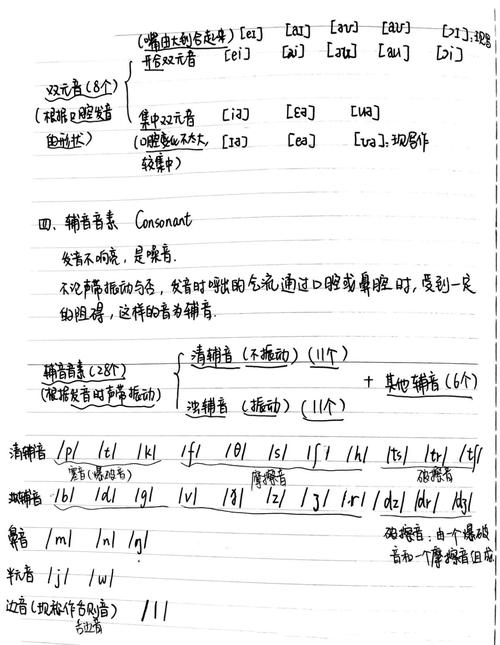 (嘴由大到合起来) [eɪ] [aɪ] [əʊ] [aʊ] [ɔɪ]:现
开合双元音 [ei] [ai] [əu] [au] [ɔi]
双元音(8个)
(根据口腔发音的形状)
集中双元音 [iə] [ɛə] [uə]
(口腔变化不太大,较集中) [ɪə] [eə] [ʊə]:现写作
四、辅音音素 Consonant
发音不响亮,是噪音.
不论声带振动与否,发音时呼出的气流通过口腔或鼻腔时,受到一定
的阻碍,这样的音为辅音.
清辅音 (不振动) (11个)
辅音音素(28个) + 其他辅音(6个)
(根据发音时声带振动)
浊辅音 (振动) (11个)
清辅音 /p/ /t/ /k/ /f/ /θ/ /s/ /ʃ/ /h/ /ts/ /tr/ /tʃ/
(爆破音) 摩擦音 破擦音
浊辅音 /b/ /d/ /g/ /v/ /ð/ /z/ /ʒ/ /r/ /dz/ /dr/ /dʒ/
破擦音:由一个爆破
鼻音 /m/ /n/ /ŋ/ 音和一个摩擦音组成
半元音 /j/ /w/
边音(现称作舌则音) /l/
舌边音